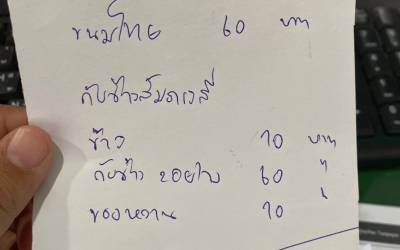 ขนมไทย 60 บาท
กับข้าวสมดาวลี่
ข้าว 10 บาท
กับข้าว 2อย่าง 60 "
ของหวาน 10 "